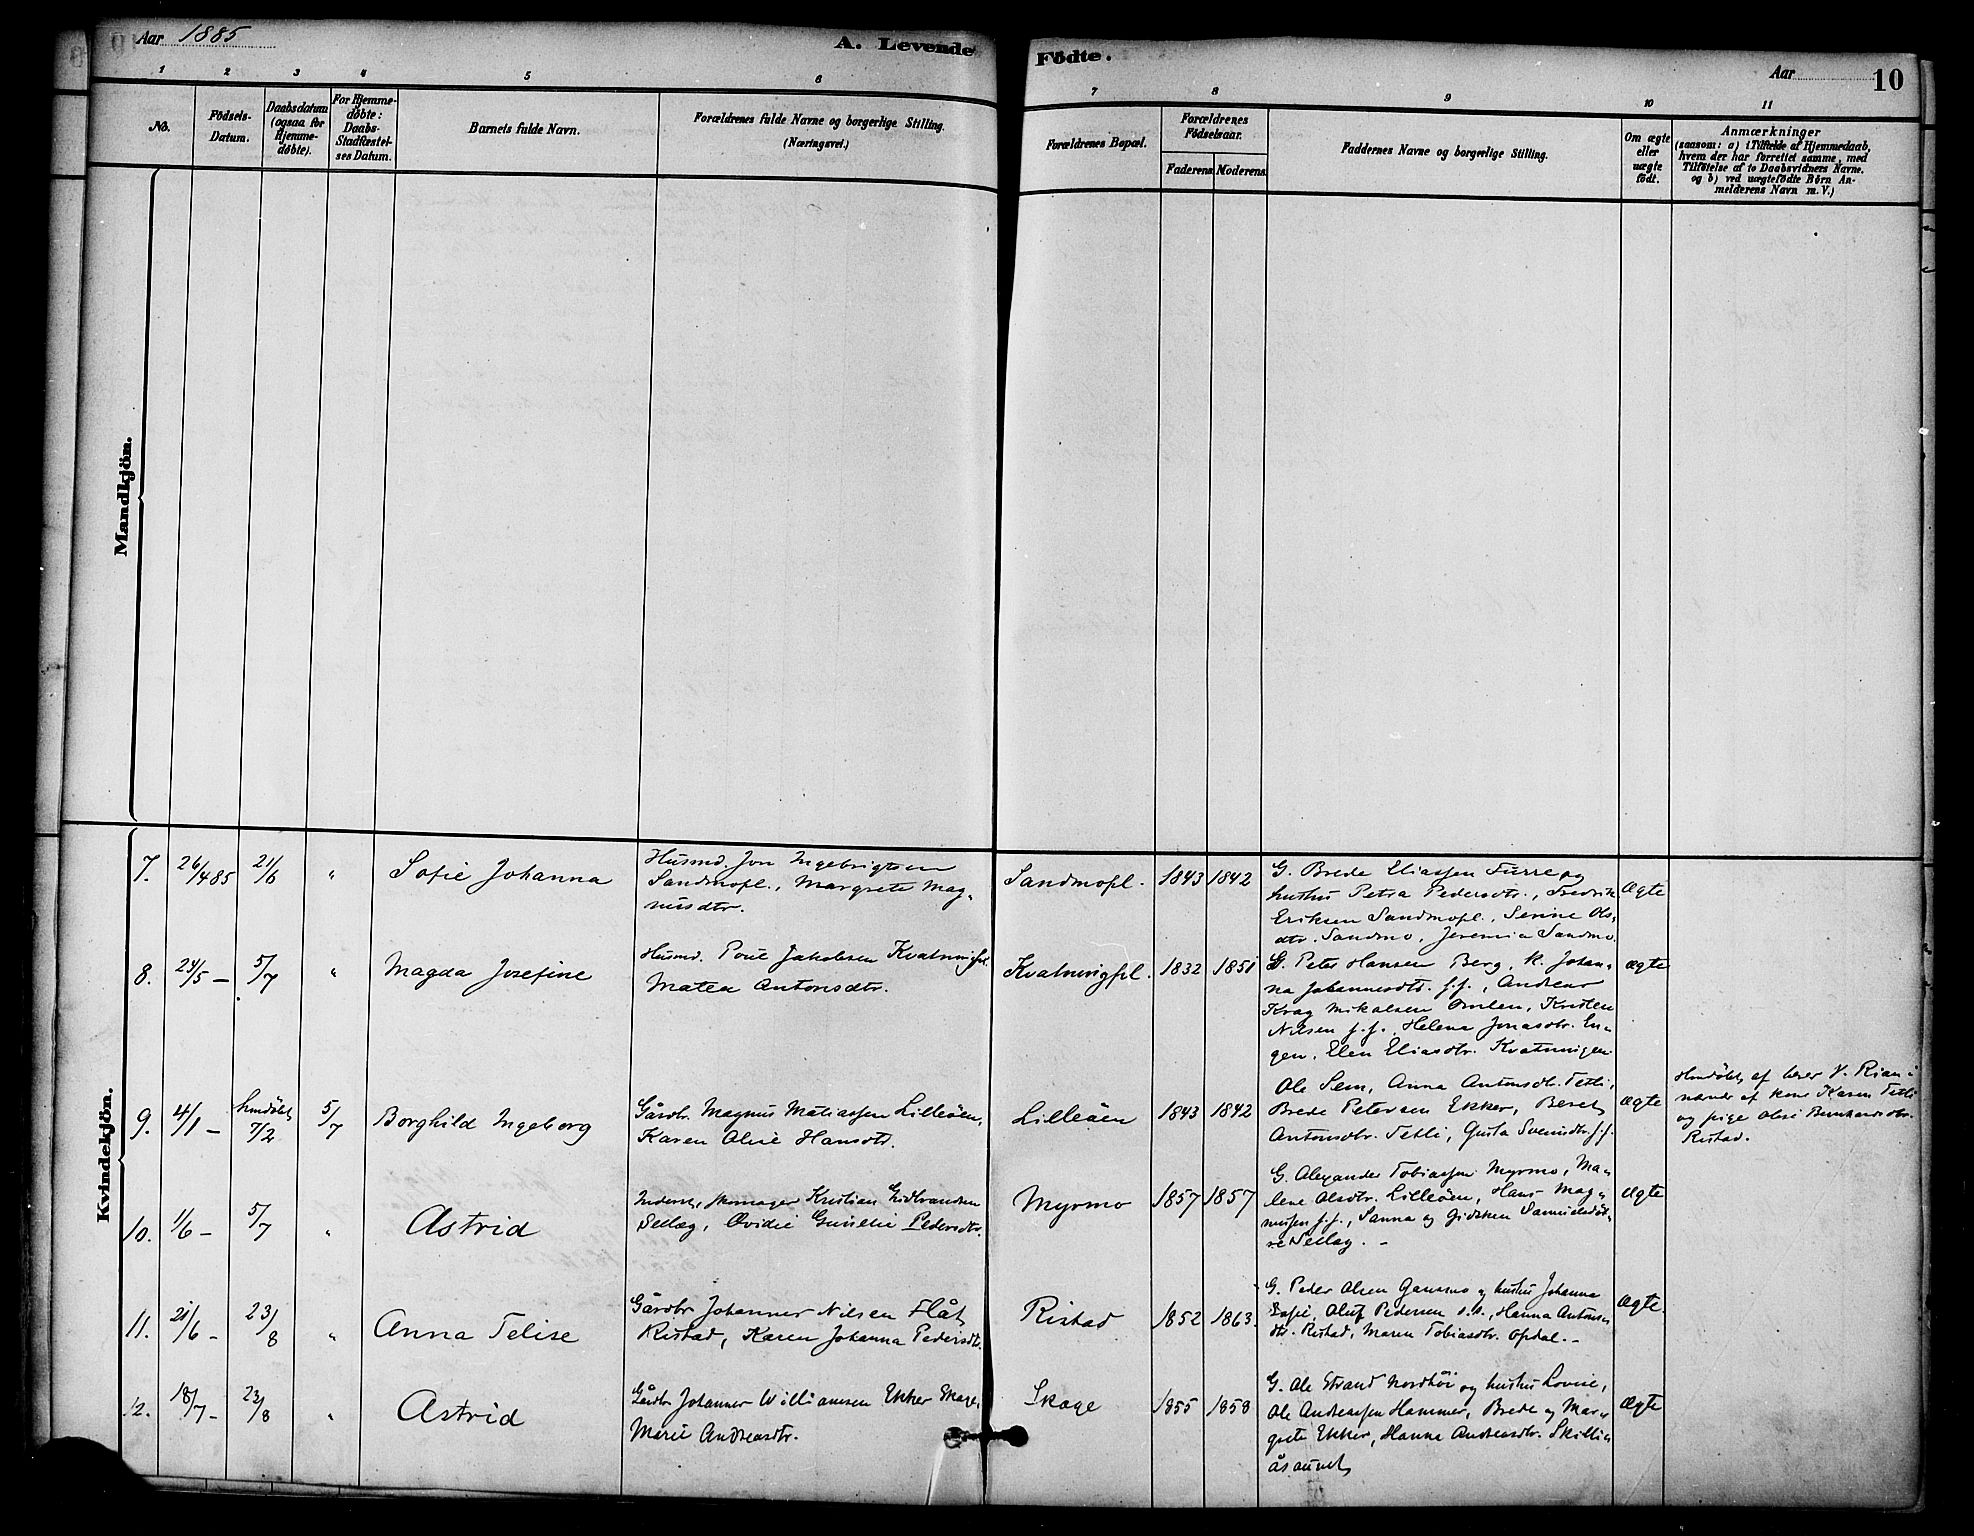 Aar 1885
A. Levende Födte.
Aar
10
1 2 3 4 5 6 7 8 9 10 11
No.
Födsels-
Datum.
Daabsdatum
(ogsaa for
Hjemme-
døbte).
For Hjemme-
døbte:
Daabs-
Stadfæstel-
ses Datum.
Barnets fulde Navn.
Forældrenes fulde Navne og borgerlige Stilling.
(Næringsvei.)
Forældrenes Bopæl.
Forældrenes
Födselsaar.
Faderens Moderens
Faddernes Navne og borgerlige Stilling.
Om ægte
eller
uægte
født.
Anmærkninger
(saasom: a) i Tilfælde af Hjemmedaab,
hvem der har forrettet samme, med
Tilføielse af to Daabsvidners Navne.
og b) ved uægtefødte Børn An-
melderens Navn m. V.)
Mandkjön.
Kvindekjön.
7. 26/4 85 21/6 " Sofie Johanna
Husmd. Jon Ingebrigtsen
Sandmopl., Margrete Mag-
nusdtr.
Sandmopl. 1843 1842
G. Brede Eliassen Furre og
hustru Petra Pedersdtr., Fredrik
Eriksen Sandmopl., Serine Ols-
dtr. Sandmo, Jeremia Sandmo.
Ægte
8. 24/5 — 5/7 " Magda Josefine
Husmd. Poul Jakobsen Kvatningpl.
Matea Antonsdtr.
Kvatningpl. 1832 1851
G. Peter Hansen Berg, k. Johan-
na Johannesdtr. s.s., Andreas
Krag Mikalsen Omlen, Kristen
Nilsen s.s., Helena Jonasdtr. En-
gen, Elen Eliasdtr. Kvatningen
ægte
9. 4/1 — hmdöbt 7/2 5/7 Borghild Ingeborg
Gårdbr. Magnus Matiassen Lilleöen,
Karen Olise Hansdtr.
Lilleöen 1843 1842
Ole Sem, Anna Antonsdtr. Tetli,
Brede Petersen Ekker, Beret
Antonsdtr. Tetli, Gusta Svensdtr. s.s.
ægte
Hmdöbt af lærer V. Rian i
nærvær af kone Karen Tetli
og pige Olise Bernhardsdtr.
Ristad.
10. 1/6 — 5/7 " Astrid
Inderst, skomager Kristian Gudbrandsen
Sellæg, Ovidie Gunelie Pedersdtr.
Myrmo 1857 1857
G. Alexander Tobiassen Myrmo, Ma-
lene Olsdtr. Lilleöen, Hans Mag-
nussen s.s., Sanna og Gidsken Samuelsdöt-
re Sellæg. —
Ægte
11. 21/6 — 23/8 " Anna Telise
Gårdbr. Johannes Nilsen Flåt
Ristad, Karen Johanna Pedersdtr.
Ristad 1852 1863.
G. Peder Olsen Gansmo og hustru Johanna
Sofie, Oluf Pedersen s.s., Hanna Antons-
dtr. Ristad, Maren Tobiasdtr. Opdal. —
Ægte.
12. 18/7 — 23/8 " Astrid
Gårdbr. Johannes Williamsen Ekker Skage,
Marie Andreasdtr.
Skage 1855 1858
G. Ole Strand Nordhöi og hustru Lovise,
Ole Andreassen Hammer, Brede og Mar-
grete Ekker, Hanna Andreasdtr. Skilli-
åsaunet
Ægte